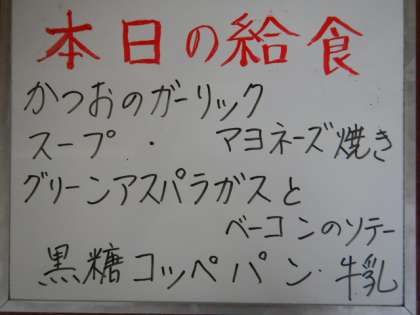 本日の給食
かつおのガーリック
スープ・ マヨネーズ焼き
グリーンアスパラガスと
ベーコンのソテー
黒糖コッペパン・牛乳